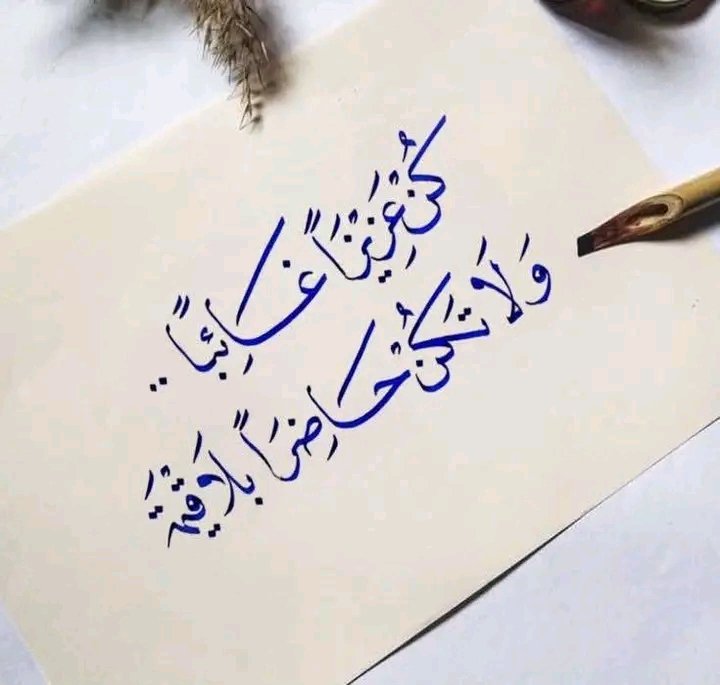 كُنْ عَزِيْزَاً غَائِبَاً..
وَلَا تَكُنْ حَاضِرَاً بِلَا قِيْمَةَ